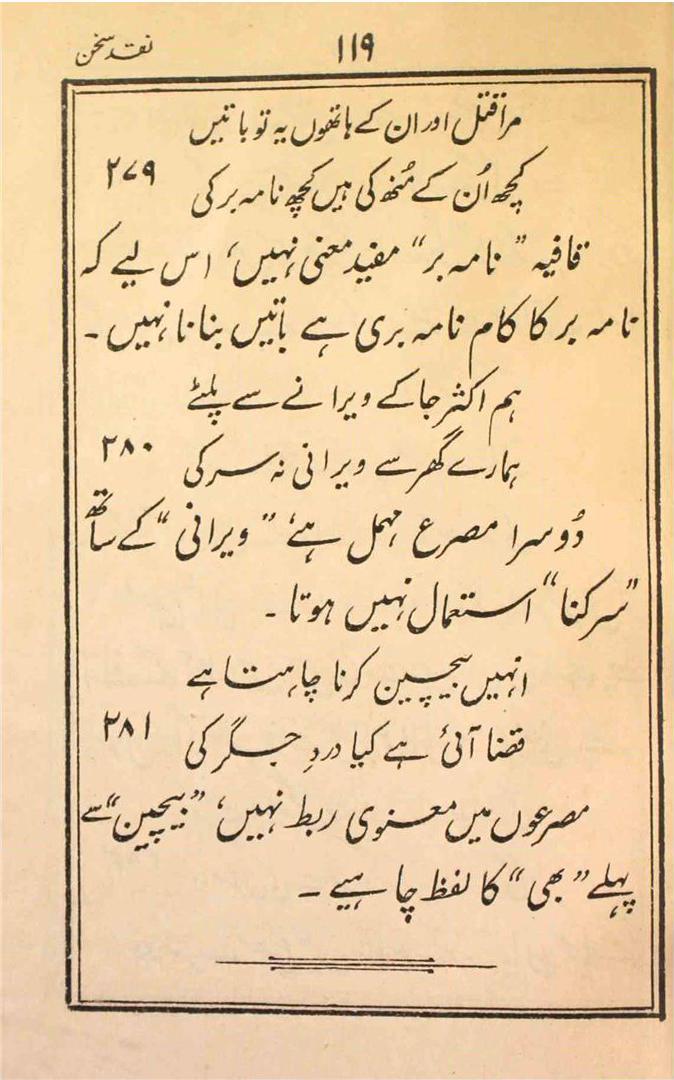 نقد سخن ۱۱۹
مرا قتل اور ان کے ہاتھوں یہ تو باتیں
کچھ اُن کے مُنھ کی ہیں کچھ نامہ بر کی ۲۷۹
قافیہ ”نامہ بر“ مفید معنی نہیں، اس لیے کہ
نامہ بر کا کام نامہ بری ہے باتیں بنانا نہیں ۔
ہم اکثر جا کے ویرانے سے پلٹے
ہمارے گھر سے ویرانی نہ سرکی ۲۸۰
دُوسرا مصرع مہمل ہے، ”ویرانی“ کے ساتھ
”سرکنا“ استعمال نہیں ہوتا ۔
انہیں بیچین کرنا چاہتا ہے
قضا آئی ہے کیا دردِ جگر کی ۲۸۱
مصرعوں میں معنوی ربط نہیں، ”بیچین“ سے
پہلے ”بھی“ کا لفظ چاہیے ۔